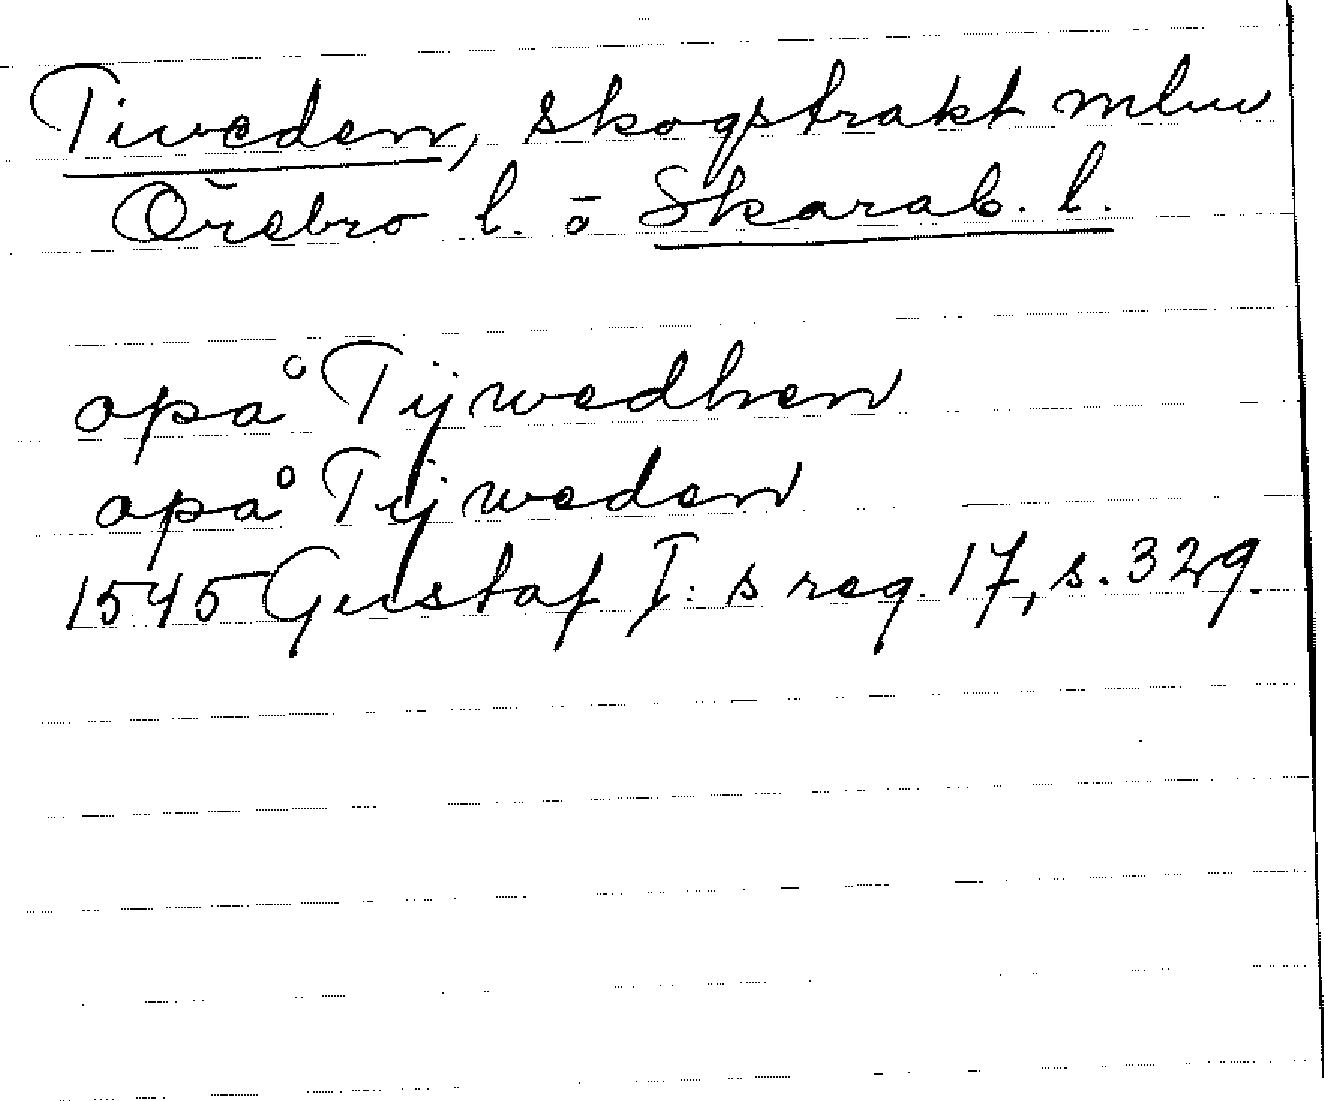 Tiveden, skogstrakt mlw
Örebro l. o Skarab. l.
opå Tijwedhen
opå Tijweden
1545 Gustaf I:s reg. 17, s. 329.